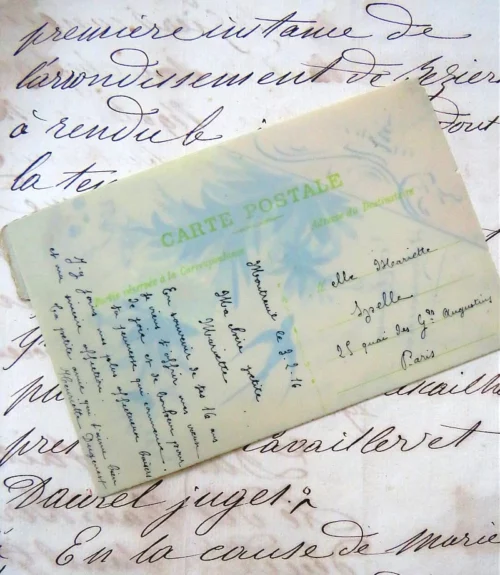 première instance de
l'arrondissement de Bezier
à rendu le
dont
la te
CARTE POSTALE
Partie réservée à la Correspondance
Adresse du Destinataire
Montreuil le 3.2.16
Ma bien petite
Marcelle
En souvenir de tes 16 ans
je viens t'offrir mes vœux
de joie et de bonheur pour
ta jeunesse qui commence.
J'y joins mes plus affectueux baisers
et ma sincère affection.
Ta petite amie qui t'aime bien
elle Mariette
25 quai des Gds Augustins
Paris
pu
pres
availler et
Daurel juges.
En la cause de marie